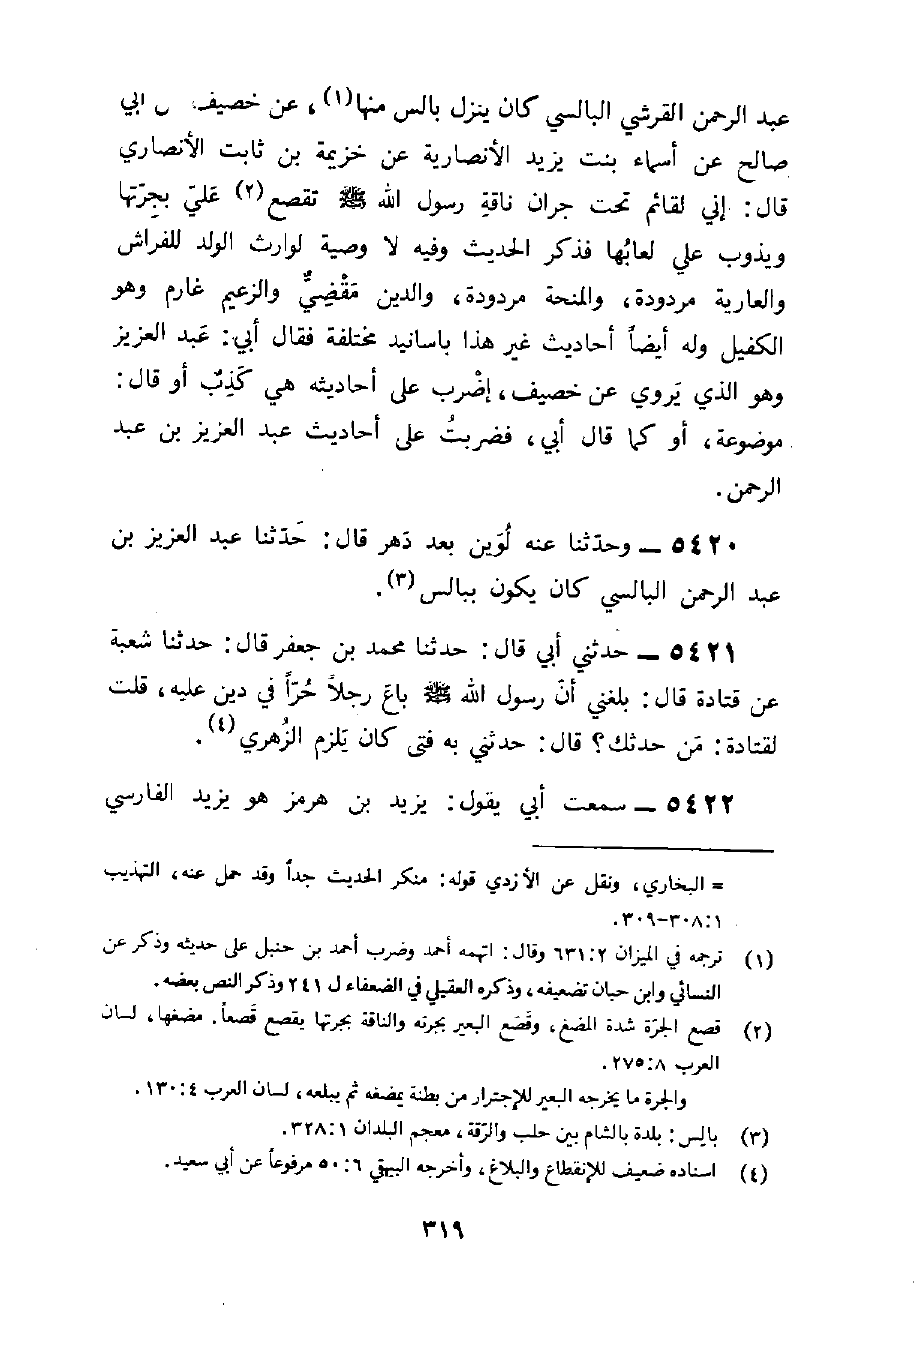 عبد الرحمن القرشي البالسي كان ينزل بالس منها(١)، عن خصيف ابي
صالح عن أسماء بنت يزيد الأنصارية عن خزيمة بن ثابت الأنصاري
قال: إني لقائم تحت جران ناقةِ رسول الله ﷺ تقصع(٢) عَليّ بِجرّتها
ويذوب علي لعابُها فذكر الحديث وفيه لا وصية لوارث الولد للفراش
والعارية مردودة، والمنحة مردودة، والدين مَقْضِيٌّ والزعيم غارم وهو
الكفيل وله أيضاً أحاديث غير هذا باسانيد مختلفة فقال أبي: عَبد العزيز
وهو الذي يَروي عن خصيف، إضْرب على أحاديثه هي كَذِبٌ أو قال:
موضوعة، أو كما قال أبي، فضربتُ على أحاديث عبد العزيز بن عبد
الرحمن.
٥٤٢٠ ــ وحدّثنا عنه لُوَين بعد دَهر قال: حَدّثنا عبد العزيز بن
عبد الرحمن البالسي كان يكون ببالس(٣).
٥٤٢١ ــ حدثني أبي قال: حدثنا محمد بن جعفر قال: حدثنا شعبة
عن قتادة قال: بلغني أنّ رسول الله ﷺ باعَ رجلاً حُرّاً في دين عليه، قلت
لقتادة: مَن حدثك؟ قال: حدثني به فتى كان يَلزم الزُهري(٤).
٥٤٢٢ ــ سمعت أبي يقول: يزيد بن هرمز هو يزيد الفارسي
= البخاري، ونقل عن الأزدي قوله: منكر الحديث جداً وقد حمل عنه، التهذيب
١:٣٠٨-٣٠٩.
(١) ترجمه في الميزان ٦٣١:٢ وقال: اتهمه أحمد وضرب أحمد بن حنبل على حديثه وذكر عن
النسائي وابن حبان تضعيفه، وذكره العقيلي في الضعفاء ل ٢٤١ وذكر النص بعضه.
(٢) قصع الجرّة شدة المضغ، وقَصَع البعير بجرته والناقة بجرتها يقصع قَصعاً. مضغها، لسان
العرب ٢٧٥:٨.
والجرة ما يخرجه البعير للإجترار من بطنة يمضغه ثم يبلعه، لسان العرب ١٣٠:٤.
(٣) بالِس: بلدة بالشام بين حلب والرّقة، معجم البلدان ٣٢٨:١.
(٤) اسناده ضعيف للإنقطاع والبلاغ، وأخرجه البيهقي ٥٠:٦ مرفوعاً عن أبي سعيد.
٣١٩